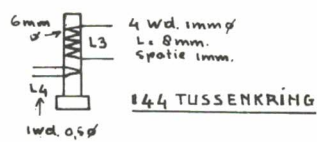 6mm
ø
L3
4 Wd. 1mmø
L= 8mm.
Spatie 1mm.
L4
1wd. 0,5ø
144 TUSSENKRING